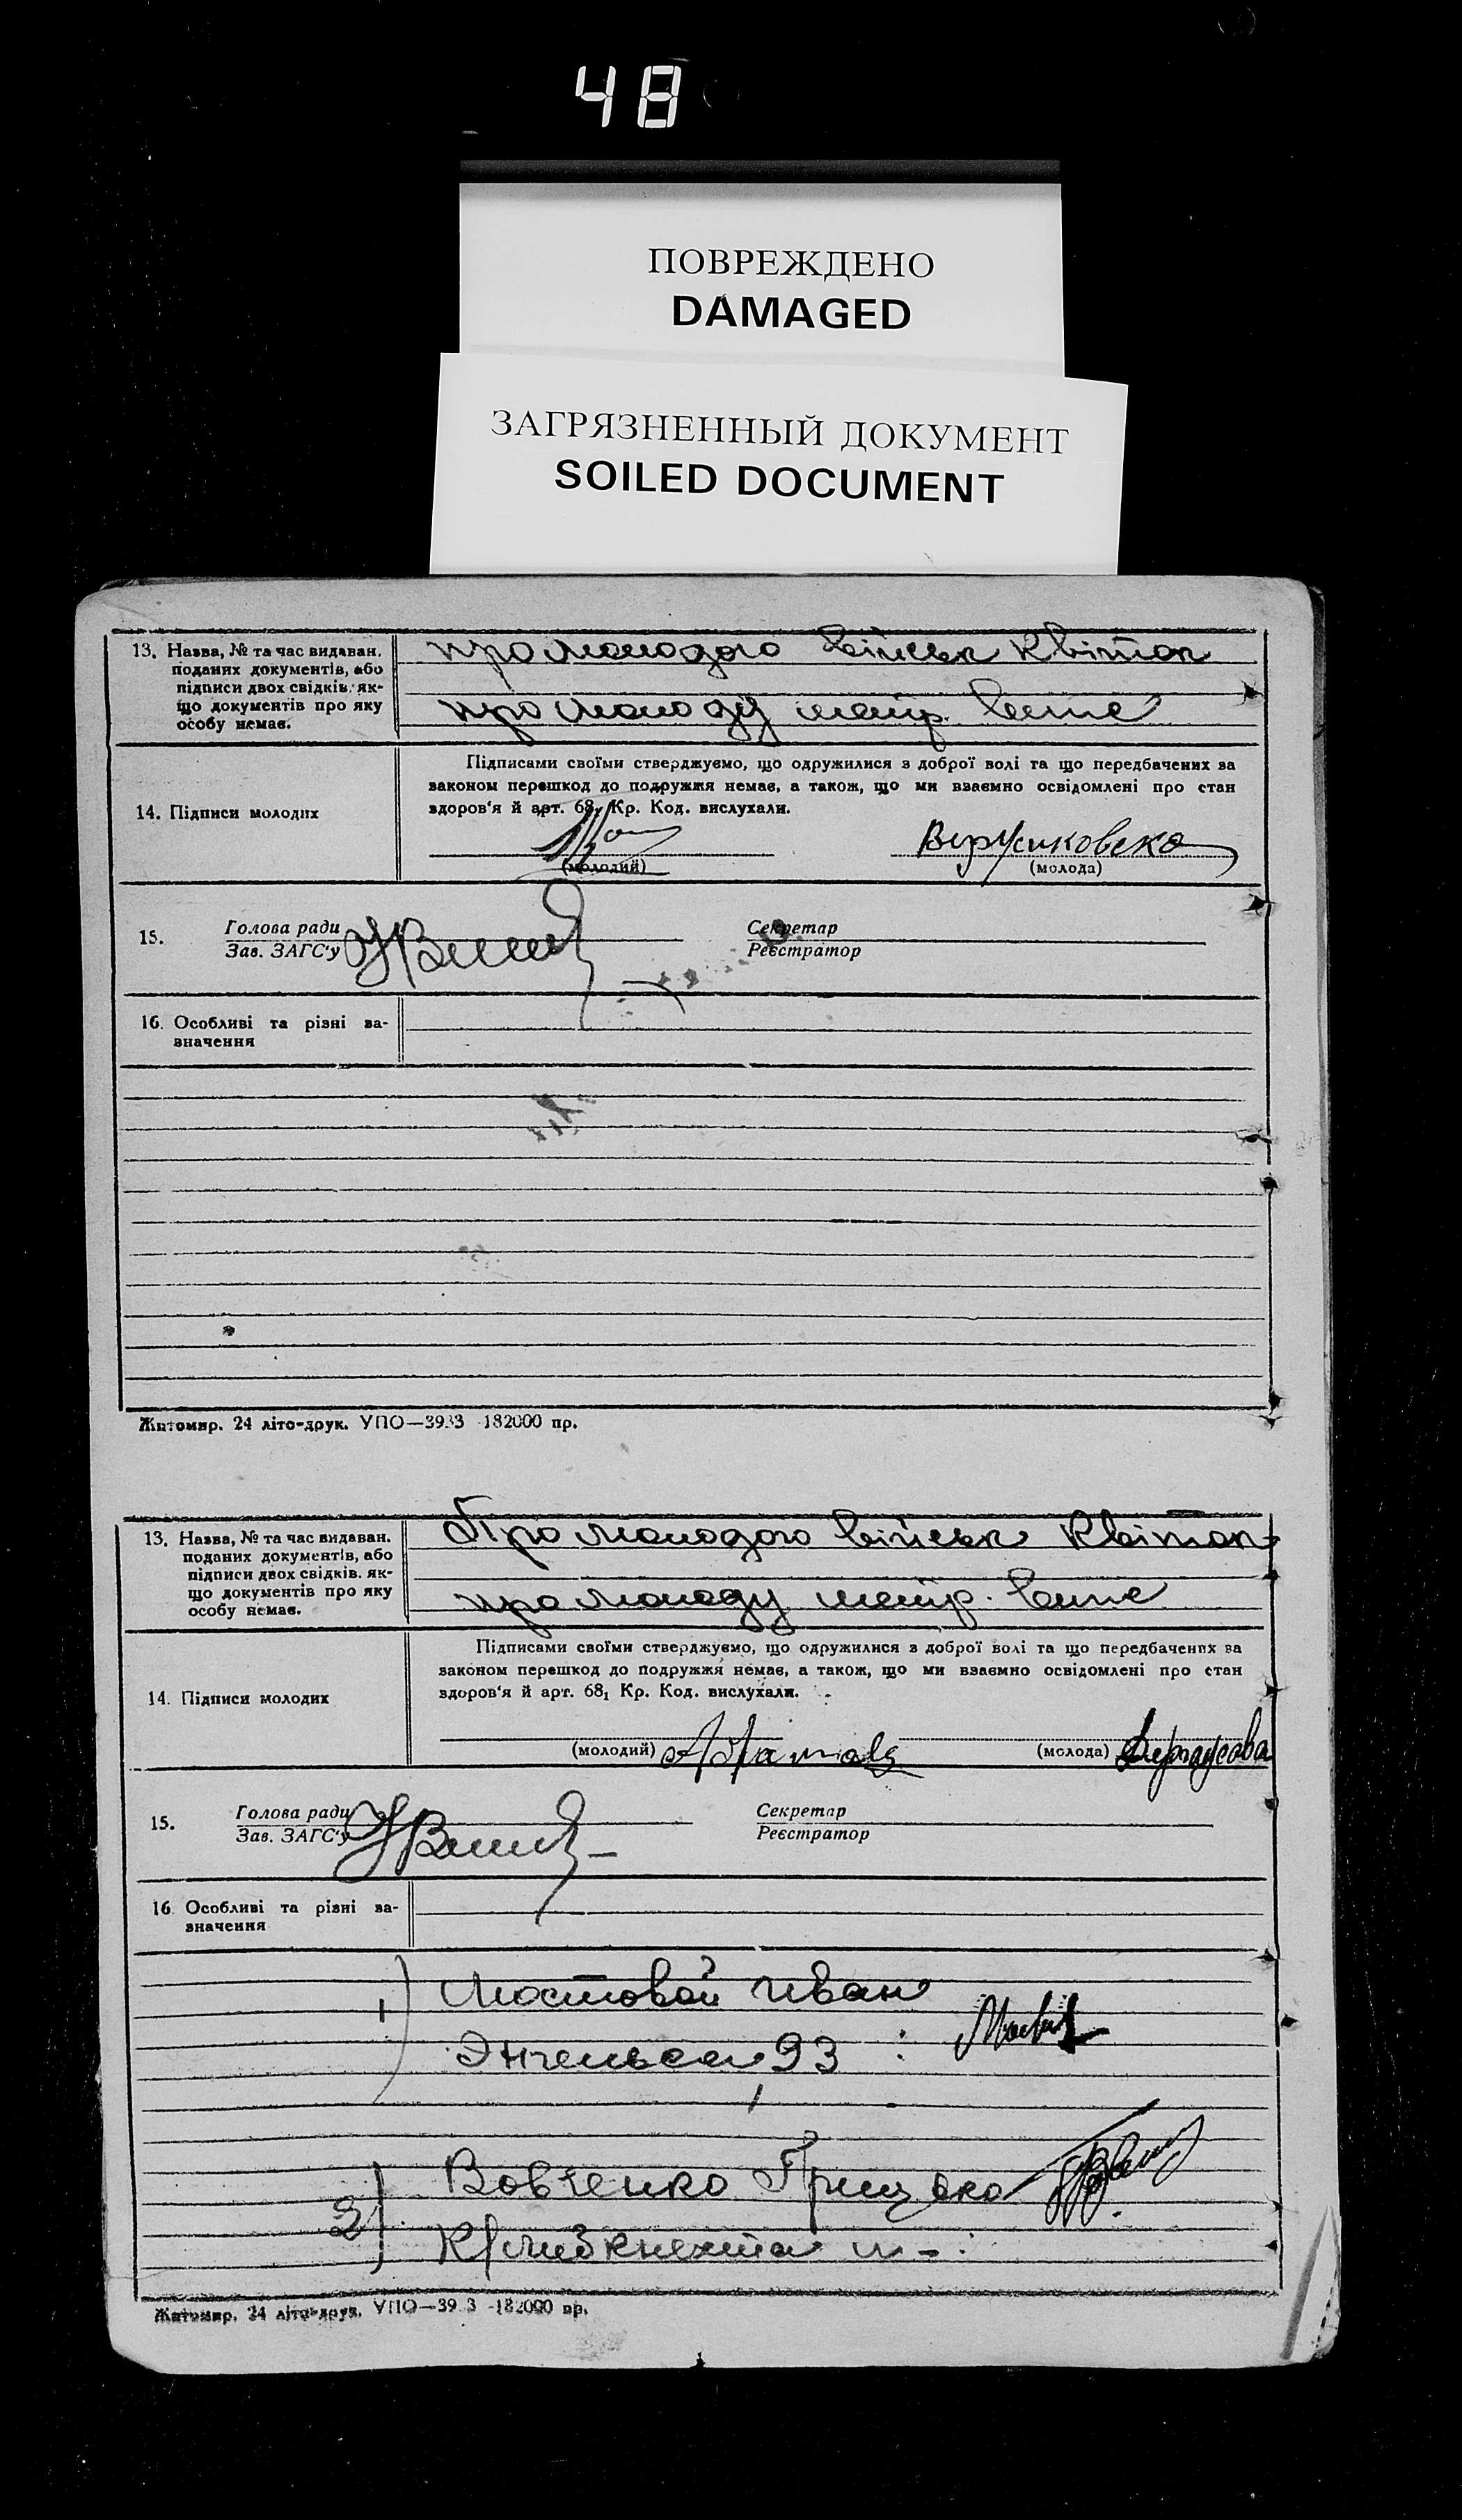 48
ПОВРЕЖДЕНО
DAMAGED
ЗАГРЯЗНЕННЫЙ ДОКУМЕНТ
SOILED DOCUMENT
13. Назва, № та час видаван.
поданих документів, або
підписи двох свідків. як-
що документів про яку
особу немає.
про молодого військ квиток
про молоду метр. випис
14. Підписи молодих
Підписами своїми стверджуємо, що одружилися з доброї волі та що передбачених за
законом перешкод до подружжя немає, а також, що ми взаємно освідомлені про стан
здоров'я й арт. 68₁ Кр. Код. вислухали.
(молодий)
(молода)
15.
Голова ради
Зав. ЗАГС'у
Секретар
Реєстратор
16. Особливі та різні за-
значення
Житомир. 24 літо-друк. УПО—3933 -182000 пр.
13. Назва, № та час видаван.
поданих документів, або
підписи двох свідків. як-
що документів про яку
особу немає.
Про молодого військ квиток
про молоду метр. випис
14. Підписи молодих
Підписами своїми стверджуємо, що одружилися з доброї волі та що передбачених за
законом перешкод до подружжя немає, а також, що ми взаємно освідомлені про стан
здоров'я й арт. 68₁ Кр. Код. вислухали.
(молодий)
(молода)
15.
Голова ради
Зав. ЗАГС'у
Секретар
Реєстратор
16 Особливі та різні за-
значення
1) Мостовой Иван
Энгельса 93
2) Вовченко Грицько
К/Либкнехта
Житомир. 24 літо-друк. УПО—39 3 -182000 пр.